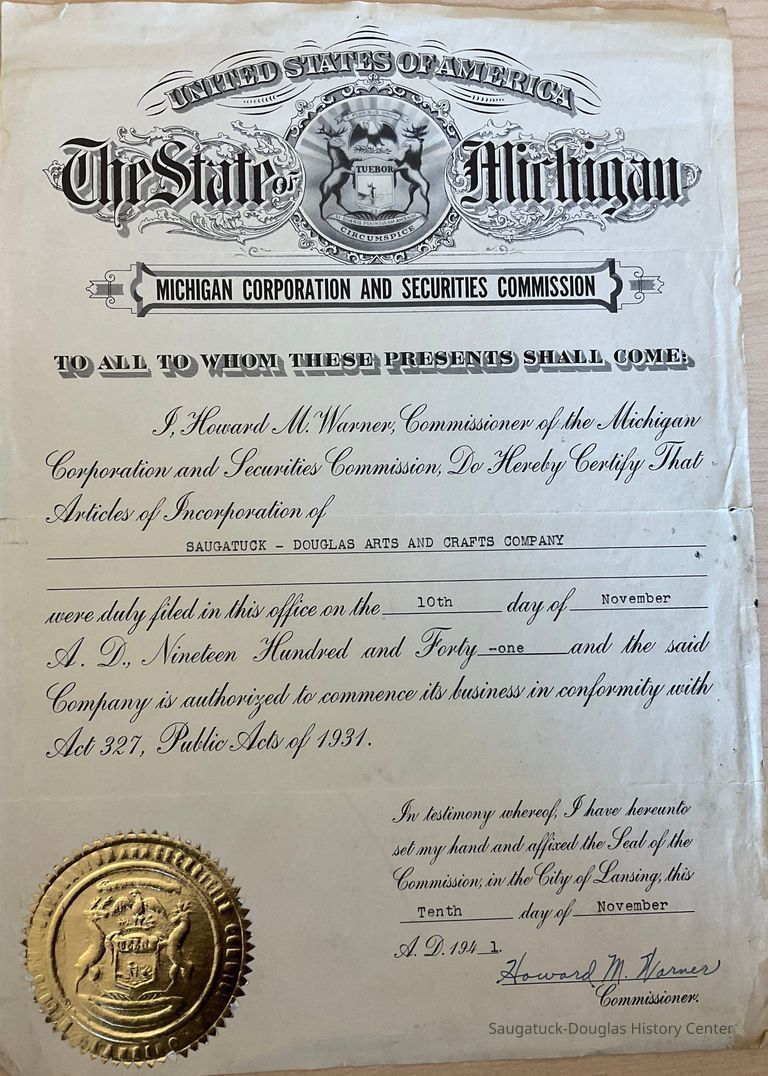 UNITED STATES OF AMERICA
The State of Michigan
E PLURIBUS UNUM
TUEBOR
SI QUAERIS PENINSULAM AMOENAM
CIRCUMSPICE
MICHIGAN CORPORATION AND SECURITIES COMMISSION
TO ALL TO WHOM THESE PRESENTS SHALL COME:
I, Howard M. Warner, Commissioner of the Michigan
Corporation and Securities Commission, Do Hereby Certify That
Articles of Incorporation of
SAUGATUCK - DOUGLAS ARTS AND CRAFTS COMPANY
were duly filed in this office on the 10th day of November
A. D., Nineteen Hundred and Forty -one and the said
Company is authorized to commence its business in conformity with
Act 327, Public Acts of 1931.
In testimony whereof, I have hereunto
set my hand and affixed the Seal of the
Commission, in the City of Lansing, this
Tenth day of November
A. D. 194 1.
Howard M. Warner
Commissioner.
Saugatuck-Douglas History Center